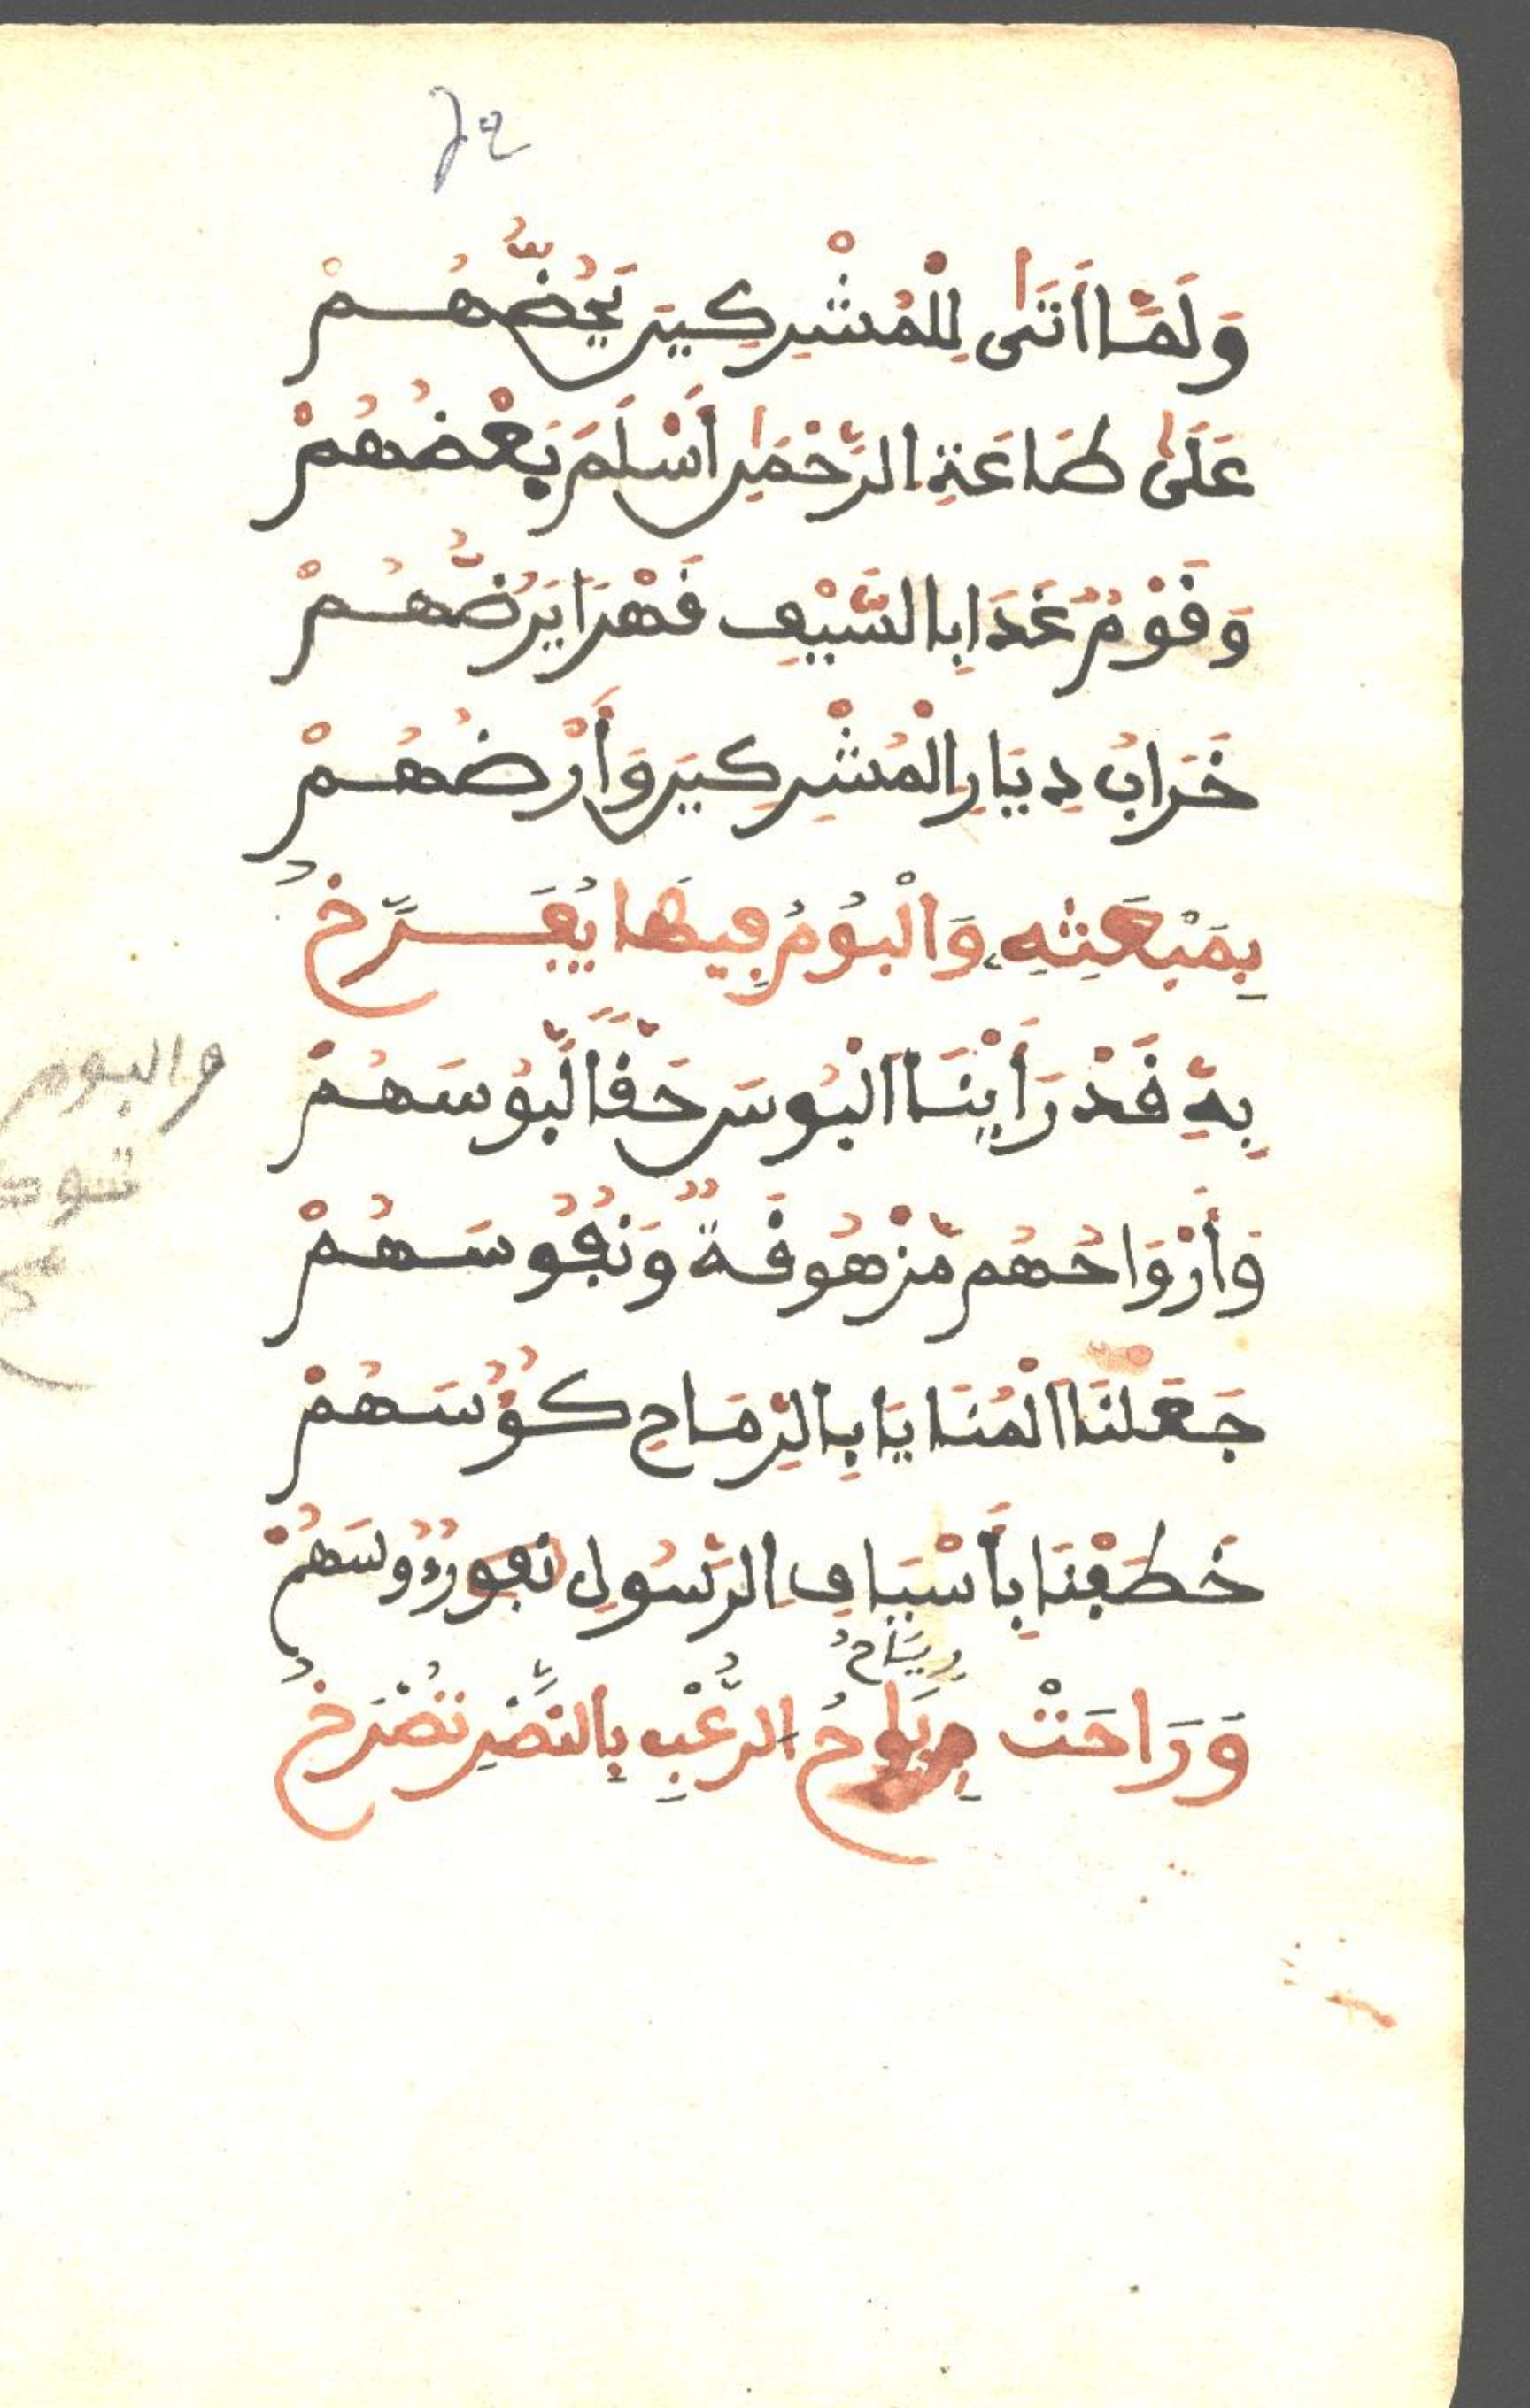 وَلَمَّا أَتَى لِلْمُشْرِكِينَ يَحُضُّهُمْ
عَلَى طَاعَةِ الرَّحْمَنِ أَسْلَمَ بَعْضُهُمْ
وَقَوْمٌ غَدَا بِالسَّيْفِ قَهْرًا يَرُضُّهُمْ
خَرَابُ دِيَارِ الْمُشْرِكِينَ وَأَرْضُهُمْ
بِمَبْعَثِهِ وَالْبُومُ فِيهَا يُفَرِّخُ
بِهِ قَدْ رَأَيْنَا الْبُوسَ حَقًّا لَّبُوسَهُمْ
وَأَرْوَاحُهُم مَّزْهُوقَةٌ وَنُفُوسَهُمْ
جَعَلْنَا الْمَنَايَا بِالرِّمَاحِ كُؤُسَهُمْ
خَطَفْنَا بِأَسْيَافِ الرَّسُولِ رُءُوسَهُمْ
رِيَاحُ
وَرَاحَتْ الرُّعْبِ بِالنَّصْرِ تَصْرَخُ
والبوم